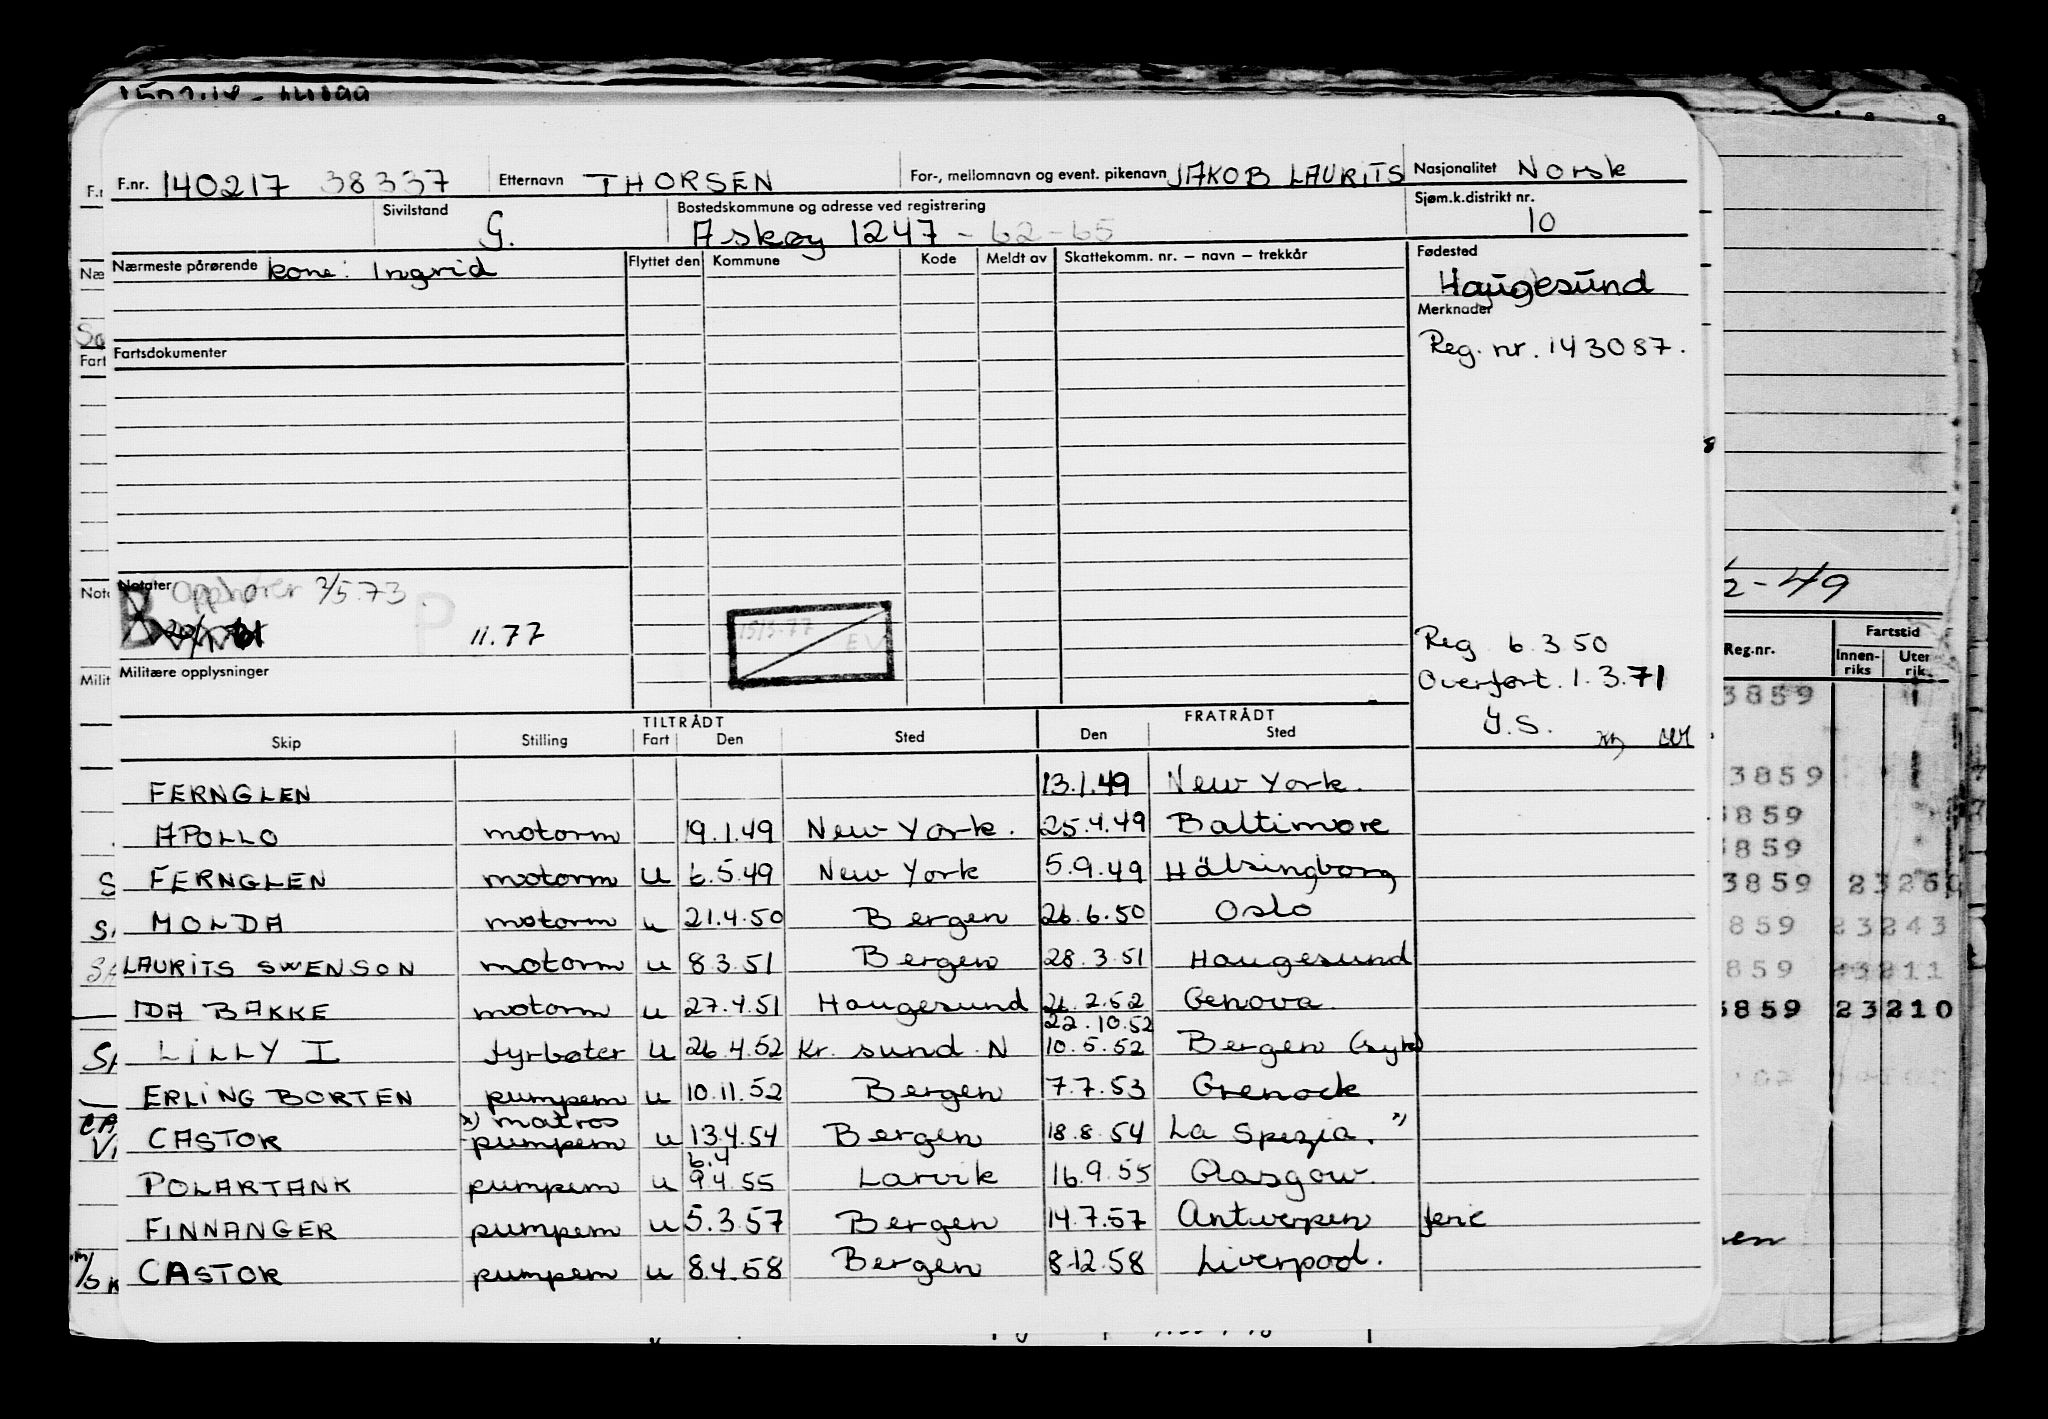 F.nr. 140217 38337 Etternavn THORSEN For-, mellomnavn og event. pikenavn JAKOB LAURITS Nasjonalitet Norsk
Sivilstand G. Bostedskommune og adresse ved registrering Askøy 1247 - 62-65 Sjøm.k.distrikt nr. 10
Nærmeste pårørende kone: Ingrid Flyttet den Kommune Kode Meldt av Skattekomm. nr. – navn – trekkår Fødested
Haugesund
Merknader
Reg. nr. 143087.
Fartsdokumenter
Notater Opphører 2/5.73.
B P 11.77
Militære opplysninger
Reg. 6.3 50
Overført. 1.3.71
Y.S.
TILTRÅDT FRATRÅDT
Skip Stilling Fart Den Sted Den Sted
FERNGLEN 13.1.49 New York.
APOLLO motorm 19.1.49 New York. 25.4.49 Baltimore
FERNGLEN motorm u 6.5.49 New York 5.9.49 Hälsingborg
MOLDA motorm u 21.4.50 Bergen 26.6.50 Oslo
LAURITS SWENSON motorm u 8.3.51 Bergen 28.3.51 Haugesund
IDA BAKKE motorm u 27.4.51 Haugesund 26.2.52 Genova
22.10.52
LILLY I fyrbøter u 26.4.52 Kr. sund. N 10.5.52 Bergen (syk)
ERLING BORTEN pumpem u 10.11.52 Bergen 7.7.53 Grenock
x) matros
CASTOR pumpem u 13.4.54 Bergen 18.8.54 La Spezia. x)
6.4
POLARTANK pumpem u 9.4.55 Larvik 16.9.55 Glasgow.
FINNANGER pumpem u 5.3.57 Bergen 14.7.57 Antwerpen ferie
CASTOR pumpem u 8.4.58 Bergen 8.12.58 Liverpool.
-49
Reg.nr. Fartstid
Innen-riks Uten riks
3859
3859
3859
3859
3859
859
859
3859 23210